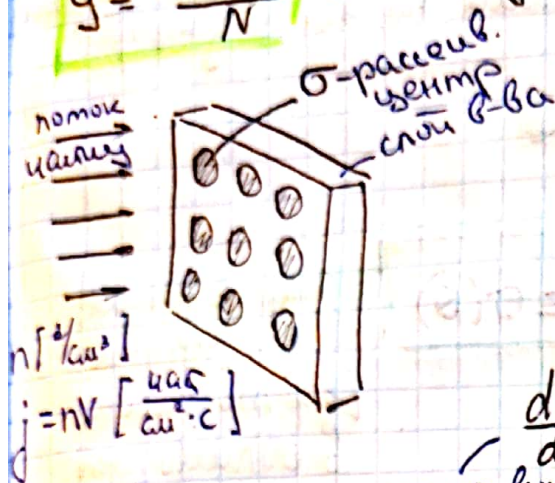 y =
N
поток
частиц
σ-рассеив.
центр
слой в-ва
n [1/см³]
j = nV [част/см²·с]
d